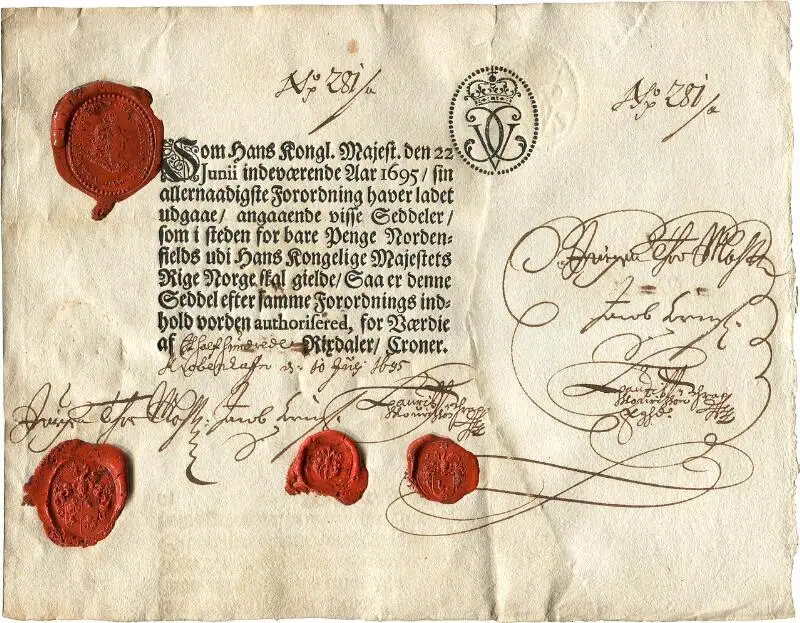 No 281/a
No 281/a
Som Hans Kongl. Majest. den 22
Junii indeværende Aar 1695/ sin
allernaadigste Forordning haver ladet
udgaae/ angaaende visse Seddeler/
som i steden for bare Penge Norden-
fields udi Hans Kongelige Majestets
Rige Norge skal gielde/ Saa er denne
Seddel efter samme Forordnings ind-
hold vorden authorisered, for Værdie
af Et half hundrede Rixdaler/ Croner.
Kiøbenhafn 1695